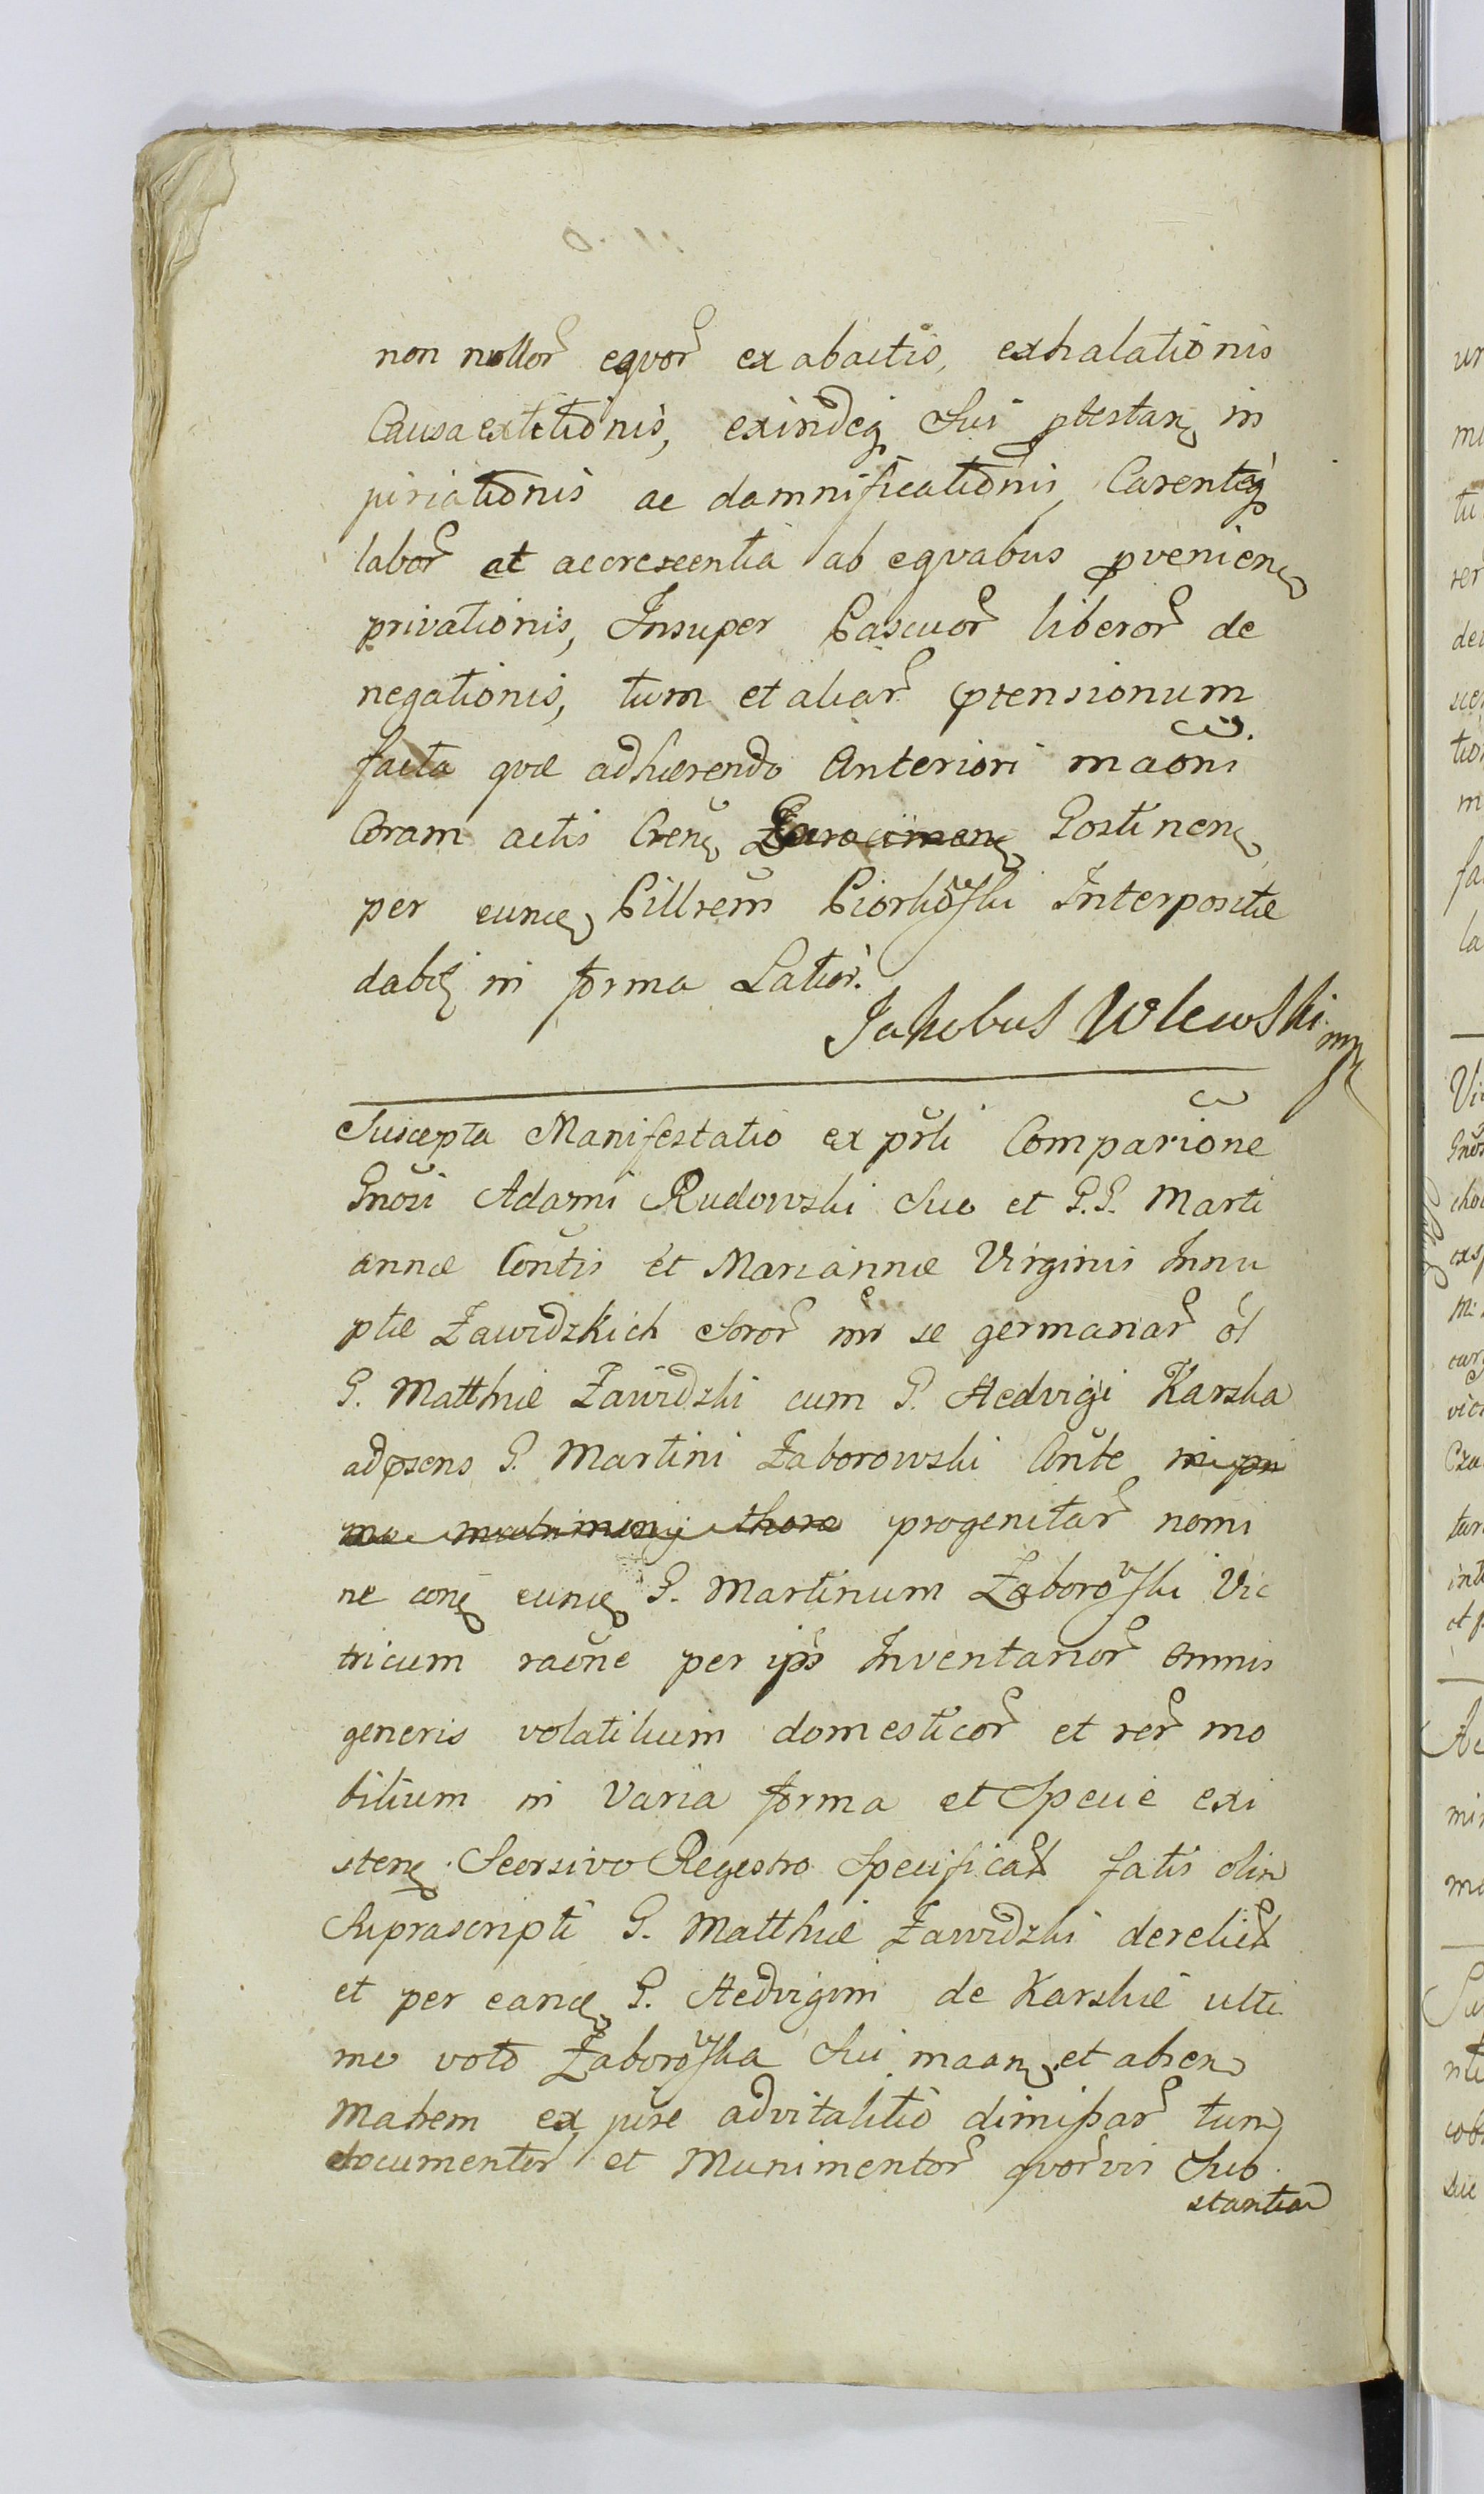 non nullor eqvor ex abactis, exhalationis
Causa extitionis, exindeq Sui ptestan in
juriationis ac damnificationis, Carentiq
labor et accrescentia ab eqvabus pvenien
privationis, Insuper Pascuor liberor de
negationis, tum et aliar ptensionum
facta qvæ adhærendo Anteriori maōni
Coram actis Cren Postinen
per eunde Pillrem Piorkowski Interpositæ
dabit in forma Latior.
Jakobus Wlewski mp
Suscepta Manifestatio ex prti Comparione
Gnosi Adami Rudowski Suo et G.G. Marti
annæ Contis et Mariannæ Virginis Innu
ptæ Zawidzkich Soror inr se germanar ol
G. Matthiæ Zawidzki cum G. Hedvigi Karska
adpsens G. Martini Zaborowski Conte in pri
mo matrimonij thoro progenitar nomi
ne con eunde G. Martinum Zaborowski Vic
tricum raōne per ips Inventarior omnis
generis volatilium domesticor et rer mo
bilium in varia forma et Specie exi
sten Seorsivo Regestro Specificat fatis olim
Suprascripti G. Matthiæ Zawidzki derelict
et per eande G. Hedvigim de Karskie ulti
mo voto Zaborowska Sui maan et absen
Matrem ex jure advitalitio dimissar tum
documentor et Munimentor qvorvis Sub
stantia